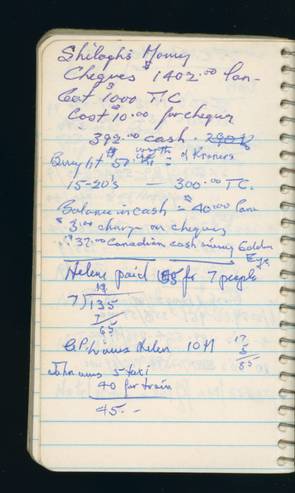 Shilagh's Money
Cheques $1402.00 Can-
Cost $1000 T/C
Cost $10.00 for cheques
392.00 cash.
$50 worth of Kroners
15-20's — 300.00 T.C.
Balance in cash = $40.00 Can
$3.00 charge on cheques
$37.00 Canadian cash
Helene paid for 7 people
7)135
7
65
owes Helen 10
17
5
85
John owes 5 taxi
40 for train
45.-